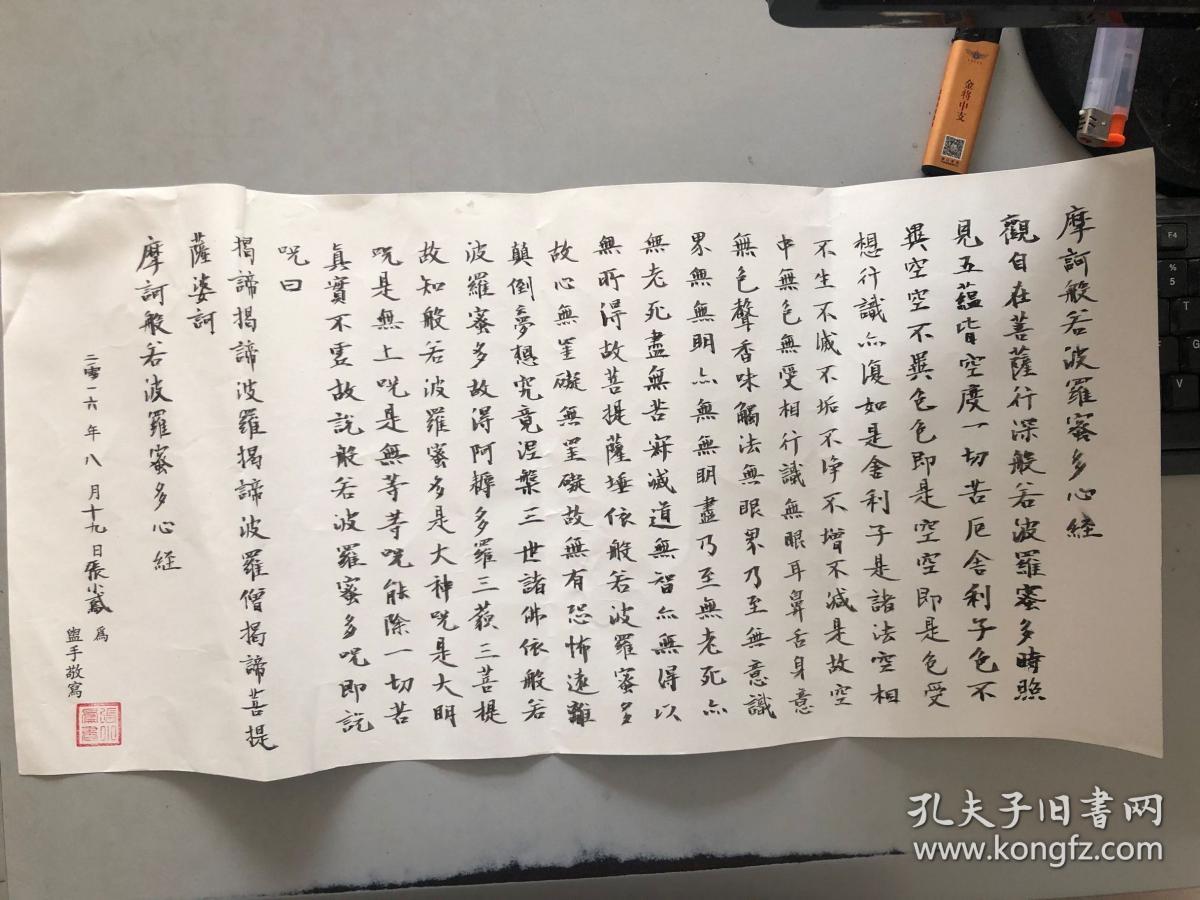 摩訶般若波羅蜜多心経
觀自在菩薩行深般若波羅蜜多時照
見五蘊皆空度一切苦厄舍利子色不
異空空不異色色即是空空即是色受
想行識亦復如是舍利子是諸法空相
不生不滅不垢不净不增不減是故空
中無色無受相行識無眼耳鼻舌身意
無色聲香味觸法無眼界乃至無意識
界無無明亦無無明盡乃至無老死亦
無老死盡無苦寂滅道無智亦無得以
無所得故菩提薩埵依般若波羅蜜多
故心無罣礙無罣礙故無有恐怖遠離
顛倒夢想究竟涅槃三世諸佛依般若
波羅蜜多故得阿耨多羅三藐三菩提
故知般若波羅蜜多是大神咒是大明
咒是無上咒是無等等咒能除一切苦
真實不虛故說般若波羅蜜多咒即說
咒曰
揭諦揭諦波羅揭諦波羅僧揭諦菩提
薩婆訶
摩訶般若波羅蜜多心経
二零一六年八月十九日張
為
盥手敬寫
金将中支
F4
%
5
T
F
G
V
孔夫子旧书网
www.kongfz.com